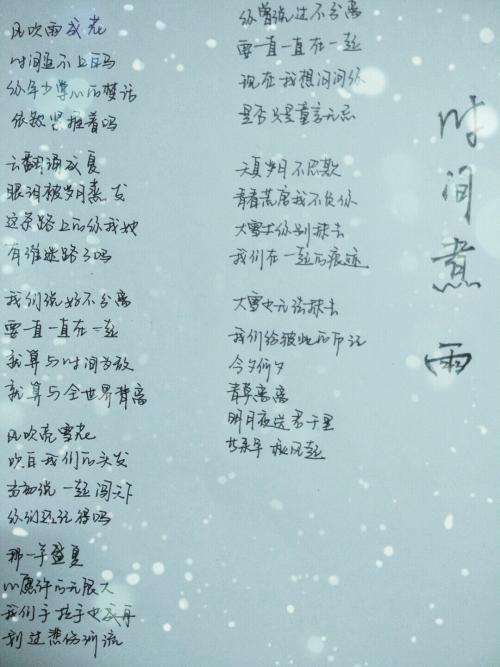 时间煮雨
风吹雨成花
时间追不上白马
你年少掌心的梦话
依然紧握着吗
云翻涌成夏
眼泪被岁月蒸发
这条路上的你我她
有谁迷路了吗
我们说好不分离
要一直一直在一起
就算与时间为敌
就算与全世界背离
风吹亮雪花
吹白我们的头发
当初说一起闯天下
你们还记得吗
那一年盛夏
心愿许的无限大
我们手拉手也成舟
划过悲伤河流
你曾说过不分离
要一直一直在一起
现在我想问问你
是否只是童言无忌
天真岁月不忍欺
青春荒唐我不负你
大雪求你别抹去
我们在一起的痕迹
大雪也无法抹去
我们给彼此的印记
今夕何夕
青草离离
明月夜送君千里
等来年 秋风起